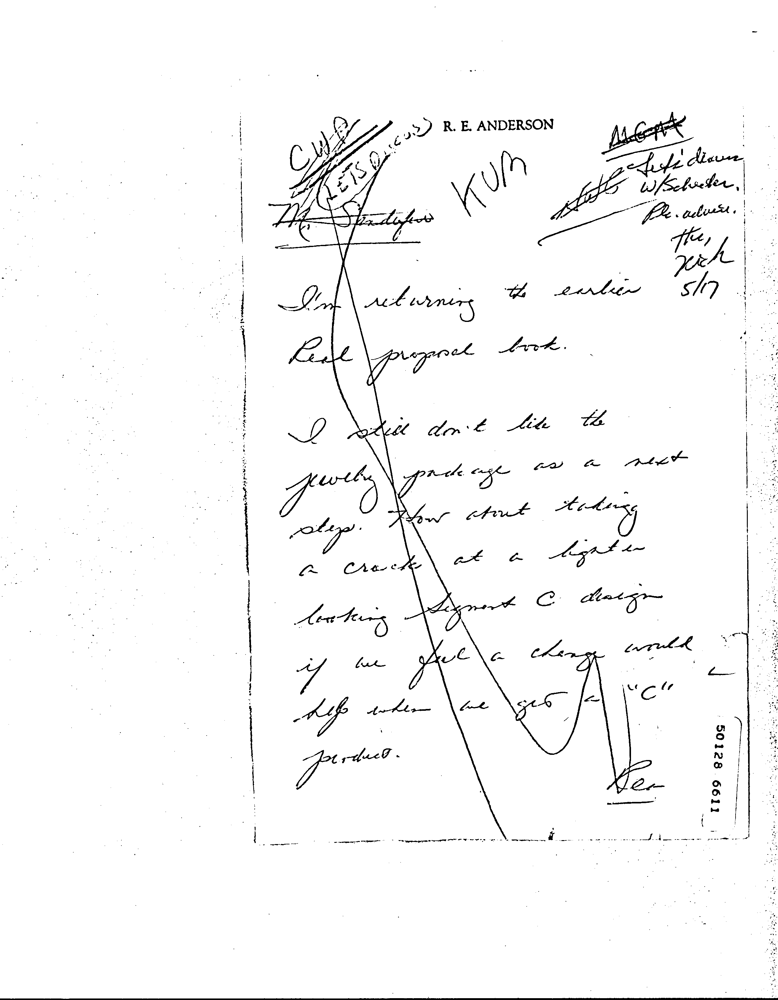 CWP
(LETS DISCUSS)
R. E. ANDERSON
MGM
KUM
Let's discuss
w/Schecter.
Pls. advise.
Thx,
5/17
Mr.
I'm returning the earlier
Real proposal book.
I still don't like the
jewelry package as a next
step. How about taking
a crack at a lighter
looking Segment C design
if we feel a change would
help when we get a "C"
product.
50128 6611